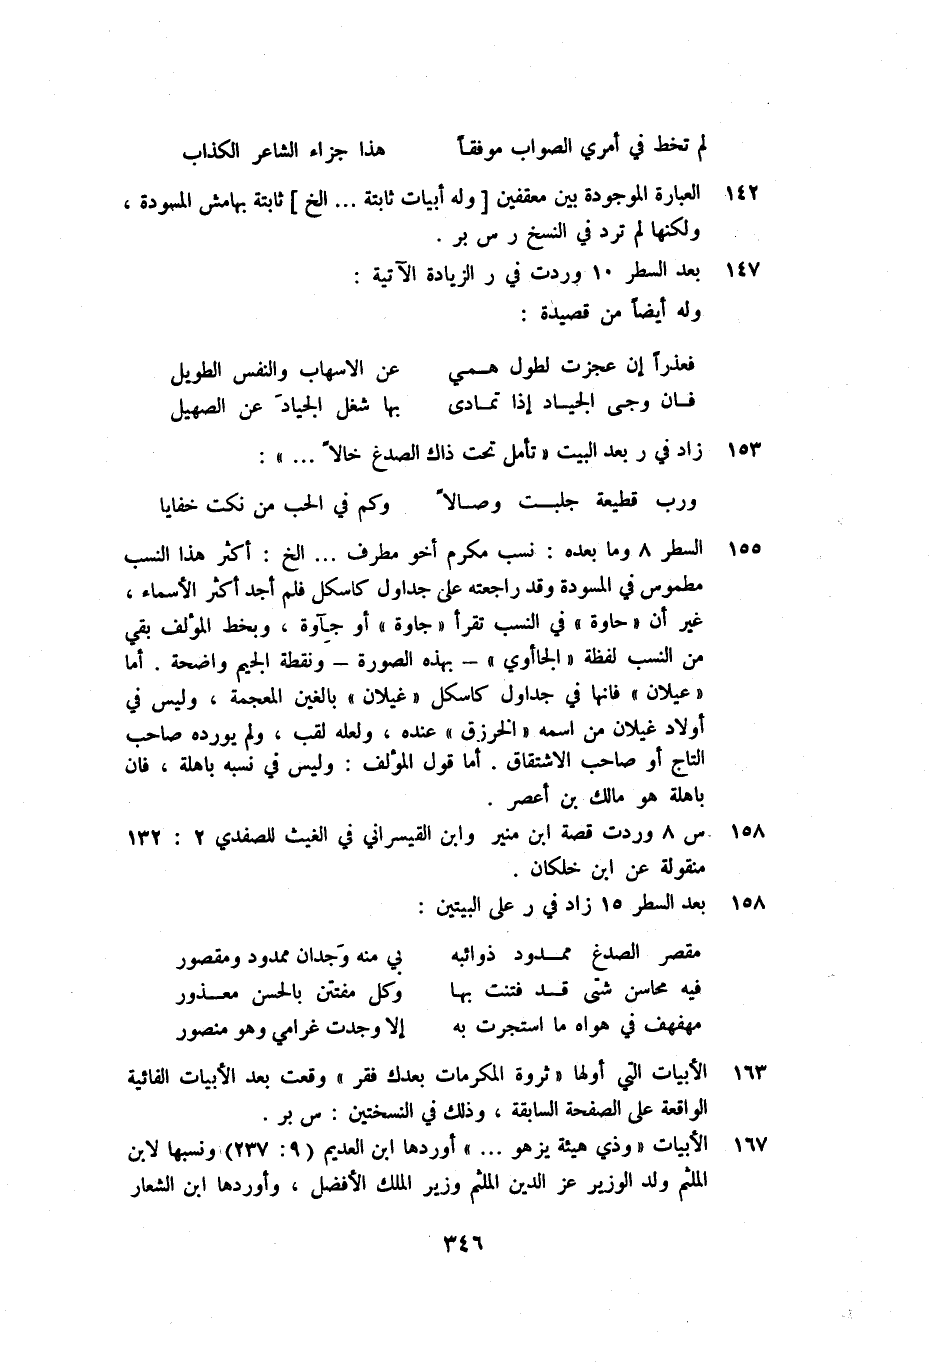 لم تخط في أمري الصواب موفقاً هذا جزاء الشاعر الكذاب
١٤٢ العبارة الموجودة بين معقفين [ وله أبيات ثابتة ... الخ ] ثابتة بهامش المسودة ،
ولكنها لم ترد في النسخ ر س بر .
١٤٧ بعد السطر ١٠ وردت في ر الزيادة الآتية :
وله أيضاً من قصيدة :
فعذراً إن عجزت لطول همي عن الاسهاب والنفس الطويل
فان وجى الجياد إذا تمادى بها شغل الجيادَ عن الصهيل
١٥٣ زاد في ر بعد البيت « تأمل تحت ذاك الصدغ خالاً ... » :
ورب قطيعة جلبت وصالاً وكم في الحب من نكت خفايا
١٥٥ السطر ٨ وما بعده : نسب مكرم أخو مطرف ... الخ : أكثر هذا النسب
مطموس في المسودة وقد راجعته على جداول كاسكل فلم أجد أكثر الأسماء ،
غير أن « حاوة » في النسب تقرأ « جاوة » أو جآوة ، وبخط المؤلف بقي
من النسب لفظة « الجاأوي » – بهذه الصورة – ونقطة الجيم واضحة . أما
« عيلان » فانها في جداول كاسكل « غيلان » بالغين المعجمة ، وليس في
أولاد غيلان من اسمه « الخرزق » عنده ، ولعله لقب ، ولم يورده صاحب
التاج أو صاحب الاشتقاق . أما قول المؤلف : وليس في نسبه باهلة ، فان
باهلة هو مالك بن أعصر .
١٥٨ س ٨ وردت قصة ابن منير وابن القيسراني في الغيث للصفدي ٢ : ١٣٢
منقولة عن ابن خلكان .
١٥٨ بعد السطر ١٥ زاد في ر على البيتين :
مقصر الصدغ ممدود ذوائبه بي منه وَجدان ممدود ومقصور
فيه محاسن شتّى قد فتنت بها وكل مفتتن بالحسن معذور
مهفهف في هواه ما استجرت به إلا وجدت غرامي وهو منصور
١٦٣ الأبيات التي أولها « ثروة المكرمات بعدك فقر » وقعت بعد الأبيات الفائية
الواقعة على الصفحة السابقة ، وذلك في النسختين : س بر .
١٦٧ الأبيات « وذي هيئة يزهو ... » أوردها ابن العديم (٩ : ٢٣٧) ونسبها لابن
الملثم ولد الوزير عز الدين الملثم وزير الملك الأفضل ، وأوردها ابن الشعار
٣٤٦